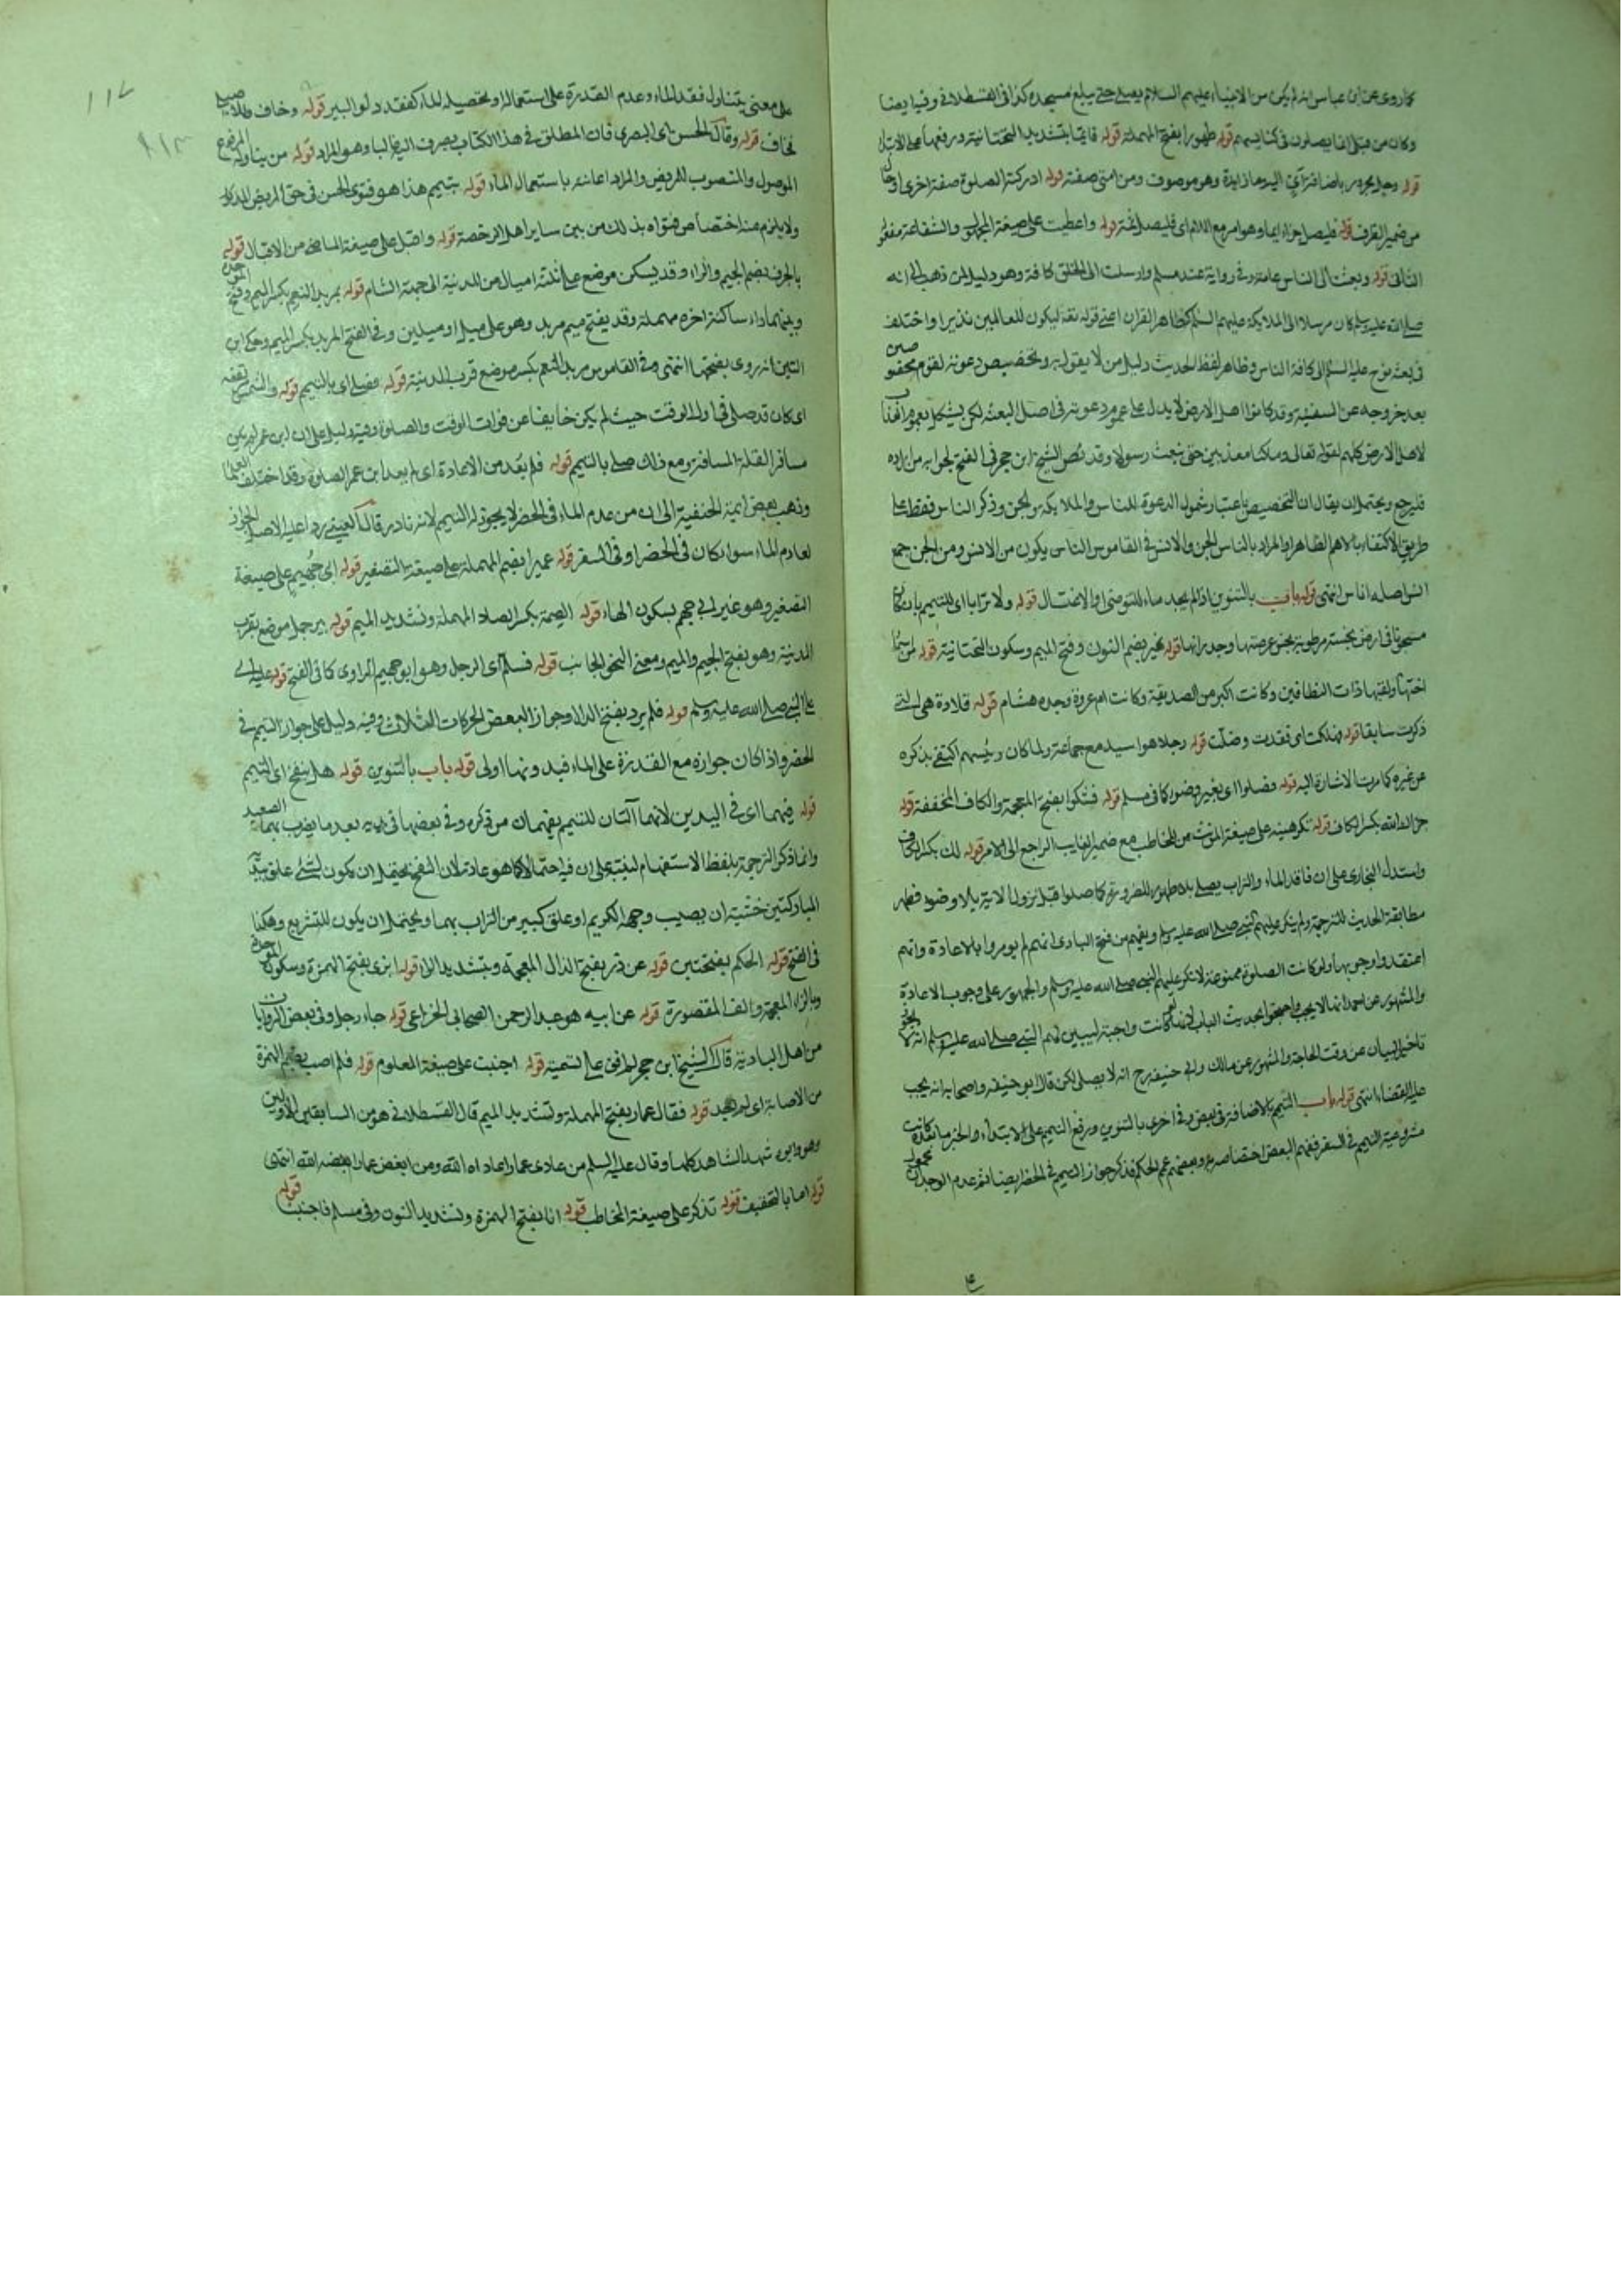 كما روى عن ابن عباس انه لم يكن من الانبياء عليهم السلام يصلي حتى يبلغ مسجده كذا في القسطلاني وفيه ايضا
وكان من قبلي انما يصلون في كنايسهم قوله طهورا بفتح المهملة قوله فايما بتشديد التحتانية ورفعها على الابتداء
قوله رجل مجرور باضافة اي اليه وما زايدة وهو موصوف ومن امتي صفته قوله ادركته الصلوة صفة اخرى او حال
من ضمير الظرف قوله فليصل جزاء ايما وهو امر مع اللام اي فليصل ثمة قوله واعطيت على صيغة المجهول والشفاعة مفعوله
الثاني قوله وبعثت الى الناس عامة وفي رواية عند مسلم وارسلت الى الخلق كافة وهو دليل لمن ذهب الى انه
صلى الله عليه وسلم كان مرسلا الى الملايكة عليهم السلم كظاهر القران اعني قوله تعالى ليكون للعالمين نذيرا واختلف
في بعثه نوح عليه السلم الى كافة الناس وظاهر لفظ الحديث دليل من لا يقول به وتخصيص دعوته لقوم مخصوصين
بعد خروجه عن السفينة وقد كانوا اهل الارض لا يدل على عموم دعوته في اصل البعثة لكن يشكل بعموم العذاب
لاهل الارض كلهم لقوله تعالى وما كنا معذبين حتى نبعث رسولا وقد نص الشيخ ابن حجر في الفتح لجوابه من اراده
فليرجع ويحتمل ان يقال ان التخصيص باعتبار شمول الدعوة للناس والملايكة والجن وذكر الناس فقط على
طريق الاكتفاء بالاهم الظاهر او المراد بالناس الجن والانس في القاموس الناس يكون من الانس ومن الجن جمع
انس اصله اناس انتهى قوله باب بالتنوين اذا لم يجد ماء للتوضئ او الاغتسال قوله ولا ترابا اي للتيمم بان كان
اختها ولقبها ذات النطاقين وكانت اكبر من الصديقة وكانت ام عروة وجده هشام قوله قلادة هي التي
ذكرت سابقا قوله فهلكت اي فقدت وضلت قوله رجلا هو اسيد مع جماعة ولما كان رئيسهم اكتفى بذكره
عن غيره كما مرت الاشارة اليه قوله فصلوا اي بغير وضوء كما في مسلم قوله فشكوا بفتح المعجمة والكاف المخففة قوله
جزاك الله بكسر الكاف قوله تكرهينه على صيغة المؤنث من المخاطب مع ضمير الغايب الراجع الى الامر قوله لك بكسر الكاف
واستدل البخاري على ان فاقد الماء والتراب يصلي بلا طهور للضرورة كما صلوا قبل نزول الاية بلا وضوء فظهر
مطابقة الحديث للترجمة ولم ينكر عليهم النبي صلى الله عليه وسلم ويفهم من فتح الباري انهم لم يومروا بالاعادة وانهم
اعتقدوا وجوبها ولو كانت الصلوة ممنوعة لانكر عليهم النبي صلى الله عليه وسلم والجمهور على وجوب الاعادة
والمشهور عن احمد انها لا يجب واحتجوا بحديث الباب لانها لو كانت واجبة لبين لهم النبي صلى الله عليه وسلم اذ لا يجوز
تاخير البيان عن وقت الحاجة والمشهور عن مالك وابي حنيفة رح انه لا يصلي لكن قال ابو حنيفة واصحابه انه يجب
عليه القضاء انتهى قوله باب التيمم بالاضافة في بعض وفي اخرى بالتنوين ورفع التيمم على الابتداء والخبر ما بعده كانت
مشروعية التيمم في السفر ففهم البعض اختصاصه به وبعضهم عمم الحكم فذكر جواز التيمم في الحضر ايضا ثم عدم الوجدان محمول
١١٧
٩١٣
على معنى يتناول فقد الماء وعدم القدرة على استعماله او تحصيله للماء كفقد دلو البير قوله وخاف وللاصيلي
فخاف قوله وقال الحسن اي البصري فان المطلق في هذا الكتاب يصرف اليه غالبا وهو المراد قوله من يناوله المرفوع
الموصول والمنصوب للمريض والمراد اعانته باستعمال الماء قوله يتيمم هذا هو فتوى الحسن في حق المريض المذكور
ولا يلزم منه اختصاص فتواه بذلك من بين ساير اهل الرخصة قوله واقبل على صيغة الماضي من الاقبال قوله
بالجرف بضم الجيم والراء وقد يسكن موضع على ثلثة اميال من المدينة الى جهة الشام قوله بمربد النعم بكسر الميم وفتح الموحدة
وبينهما راء ساكنة اخره مهملة وقد يفتح ميم مربد وهو على ميل او ميلين وفي الفتح المربد بكسر الميم وحكى ابن
التين انه روى بفتحها انتهى وفي القاموس مربد النعم كمنبر موضع قرب المدينة قوله فصلى اي بالتيمم قوله والشمس مرتفعه
اي كان قد صلى في اول الوقت حيث لم يكن خايفا عن فوات الوقت والصلوة وفيه دليل على ان ابن عمر لم يكن
مسافرا لقلة المسافة ومع ذلك صلى بالتيمم قوله فلم يعد من الاعادة اي لم يعد ابن عمر الصلوة وقد اختلف العلماء
وذهب بعض ايمة الحنفية الى ان من عدم الماء في الحضر لا يجوز له التيمم لانه نادر قال العيني ردا عليه الاصل الجواز
لعادم الماء سواء كان في الحضر او في السفر قوله عميرا بضم المهملة على صيغة التصغير قوله ابي جهيم على صيغة
التصغير وهو غير ابي جهم بسكون الهاء قوله الصمة بكسر الصاد المهملة وتشديد الميم قوله بير جمل موضع بقرب
المدينة وهو بفتح الجيم والميم ومعنى النحو الجانب قوله فسلم اي الرجل وهو ابو جهيم الراوي كما في الفتح قوله عليه اي
على النبي صلى الله عليه وسلم قوله فلم يرد بفتح الدال وجواز البعض الحركات الثلاث وفيه دليل على جواز التيمم في
الحضر واذا كان جوازه مع القدرة على الماء فبدونها اولى قوله باب بالتنوين قوله هل ينفخ اي التيمم
قوله فيهما اي في اليدين لانهما آلتان للتيمم يفهمان من ذكره وفي بعضها في يديه بعد ما يضرب بهما الصعيد
وانما ذكر الترجمة بلفظ الاستفهام لينبه على ان فيه احتمالا كما هو عادته لان النفخ يحتمل ان يكون لشئ علق بيده
المباركتين خشية ان يصيب وجهه الكريم او علق كبير من التراب بهما ويحتمل ان يكون للتشريع وهكذا
في الفتح قوله الحكم بفتحتين قوله عن ذر بفتح الذال المعجمة وبتشديد الراء قوله ابزى بفتح الهمزة وسكون الموحدة
وبالزاء المعجمة والف المقصورة قوله عن ابيه هو عبد الرحمن الصحابي الخزاعي قوله جاء رجل وفي بعض الروايات
من اهل البادية قال الشيخ ابن حجر لم اقف على تسميته قوله اجنبت على صيغة المعلوم قوله فلم اصب بضم الهمزة
من الاصابة اي لم اجد قوله فقال عمار بفتح المهملة وتشديد الميم قال القسطلاني هو من السابقين الاولين
وهو وابوه شهد المشاهد كلها وقال عليه السلم من عادى عمارا عاداه الله ومن ابغض عمارا ابغضه الله انتهى
قوله اما بالتخفيف قوله تذكر على صيغة المخاطب قوله انا بفتح الهمزة وتشديد النون وفي مسلم فاجنبنا قوله